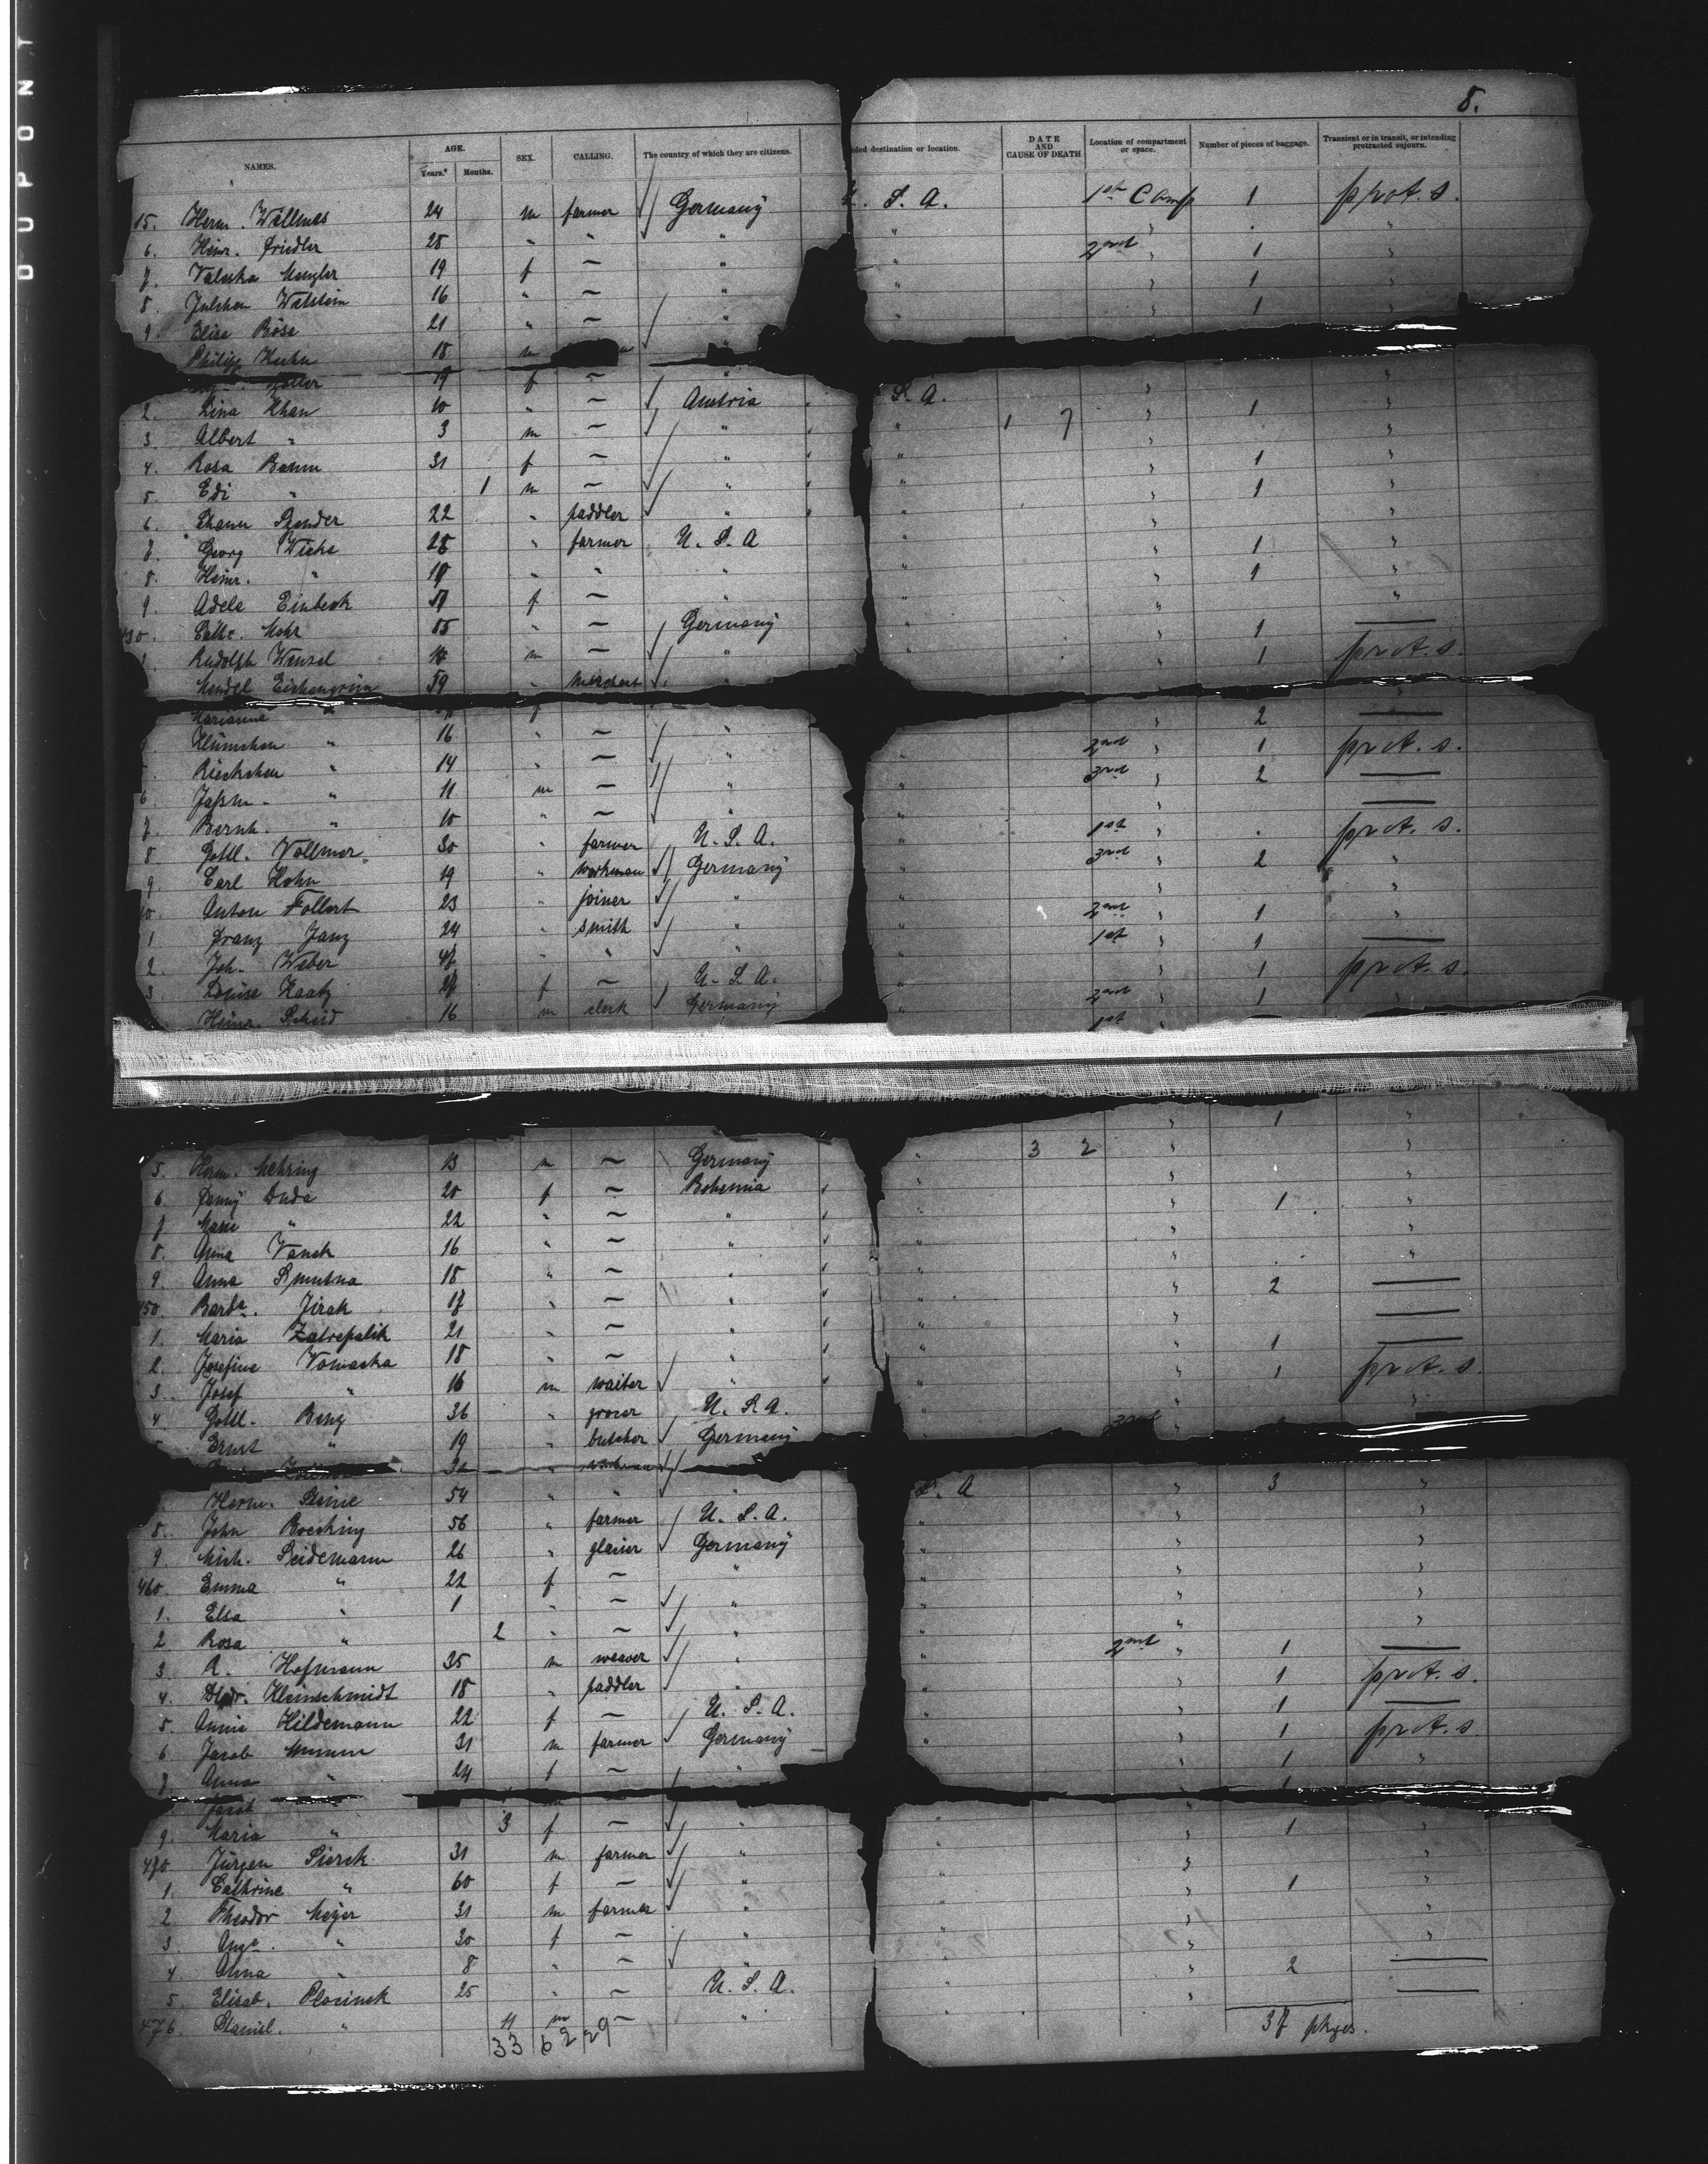 DUPONT
8.
NAMES. AGE. Years.* Months. SEX. CALLING. The country of which they are citizens. ded destination or location. DATE AND CAUSE OF DEATH Location of compartment or space. Number of pieces of baggage. Transient or in transit, or intending protracted sojourn.
15. Herm. Wellmes 24 m farmer Germany S. A. 1st Comp 1 prot. s.
6. Heinr. Friedler 28 " — " " " . "
7. Valeska Menzler 19 f — " " 2nd " 1 "
8. Julchen Walstein 16 " — " " " 1 "
9. Elise Böse 21 " — " " " 1 "
Philipp Kuhn 18 m "
19 f — "
2. Lina Khan 10 " — Austria S. A. " 1 "
3. Albert " 3 m — " " 1 7 " "
4. Rosa Baum 31 f — " " " 1 "
5. Edi " 1 m — " " " 1 "
6. 22 " paddler " " " "
7. Georg Wicke 28 " farmer U. S. A " " 1 "
8. Heinr. " 19 " " " " " 1 "
9. Adele Einbeck 59 f — " " " "
430. Cathe. Mohr 15 " — Germany " " 1 —
1. Rudolph Wensel m — " " " 1 prot. s.
Mendel Eichengrün 59 " merchant "
Marianne " f " 2 —
Blümchen " 16 " — " " 2nd " 1 prot. s.
Rickchen " 14 " — " " 3rd " 2 —
6. " 11 m — " " " —
7. Bernh. " 10 " — " " 1st " . prot. s.
8. Gottl. Vollmer 30 " farmer U. S. A. " 3rd " 2 "
9. Carl Hohn 19 " workman Germany " " "
40. Anton Follert 23 " joiner " " 2nd " 1 "
1. Franz Janz 24 " smith " " 1st " 1 —
2. Joh. Weber 47 " " " " " 1 prot. s.
3. Louise Kaatz 27 f — U. S. A. " 2nd " 1 "
Heinr. Scheid 16 m clerk Germany " 1st
" 1 "
5. Herm. Mehring 13 m — Germany " 3 2 " "
6. Fanny Duda 20 f — Bohemia " " "
7. Marie " 22 " — " " " 1 "
8. Anna Vanek 16 " — " " " "
9. Anna Smutna 18 " — " " " . "
450. Barba. Jirak 17 " — " " " 2 —
1. Maria Zatrepalik 21 " — " " " —
2. Josefine Vomacka 18 " — " " " 1 —
3. Josef " 16 m waiter " " " 1 prot. s.
4. Gottl. Benz 36 " grocer U. S. A. " " "
Ernst " 19 " butcher Germany " 3rd "
32 " workman
Herm. Steine 54 " " " S. A " 3 "
8. John Boecking 56 " farmer U. S. A. " " "
9. Mich. Seidemann 26 " glazier Germany " " "
460. Emma " 22 f — " " " "
1. Elsa " 1 " — " " " "
2. Rosa " 2 " — " " " "
3. A. Hofmann 35 m weaver " " 2nd " 1 —
4. Kleinschmidt 18 " paddler " " " 1 prot. s.
5. Annie Hildemann 22 f — U. S. A. " " 1 —
6. Jacob Mumm 31 m farmer Germany " " 1 prot. s
7. Anna " 24 f — " " 1 "
Jacob
9. Maria " 3 f — " " " 1 "
470. Jürgen Sierck 31 m farmer " " " "
1. Cathrine " 60 f — " " " 1 "
2 Theodor Meyer 31 m farmer " " " "
3. Auge. " 30 f — " " " "
4. Anna " 8 " — " " " 2 —
5. Elisab. 25 " — U. S. A. " " —
476. Stanisl. " 11 m — " "
33 6 2 29
37 pkges.